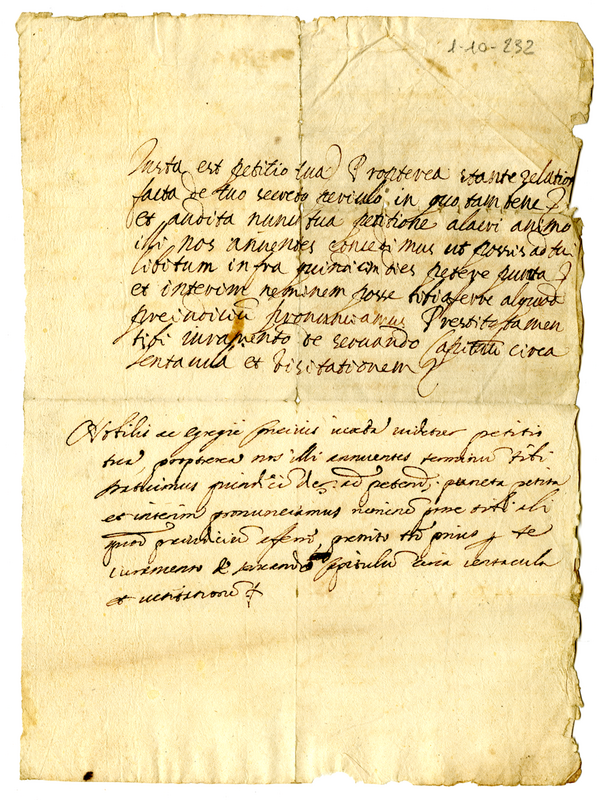 1-10-232
Iusta est petitio tua Propterea stante relation
facta de tuo secreto periculo in quo tam bene
et audita nunc tua petitione alacri animo
nos annuentes concedimus ut possis ad tu
libitum infra quindicim dies petere puncta
et interim neminem posse tibi aferre aliquod
preiudicium pronunciamus Prestito tamen
tibi iuramento de servando circa
sentacula et visitationem
Nobilis ac egregie videtur petitio
tua, propterea nos illi annuentes terminum tibi
statuimus dies ad petend puncta
et interim pronunciamus neminem posse tibi ali
quod preiudicium afferre, prestito prius te
iuramento de servando capitulum circa ientacula
et